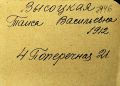 Высоцкая
Таиса Васильевна
1912
4 Поперечная 21